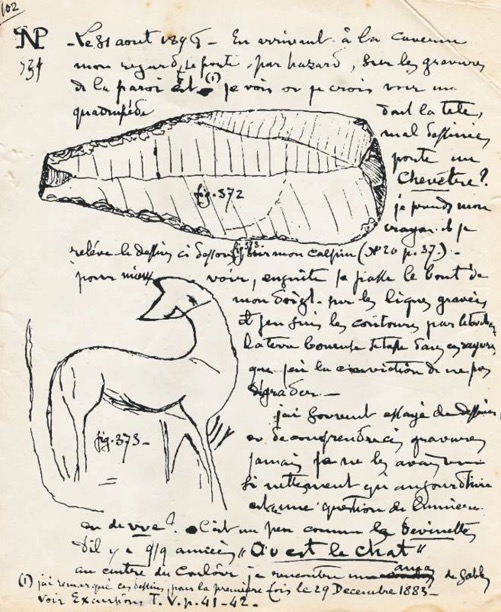 102
NP
- Le 31 aout 189 - En arrivant à la caverne
mon regard, se porte, par hazard, sur les gravures
de la paroi Est (1) je vois ou je crois voir un
quadrupède dont la tête,
mal dessinée,
porte un
Chevêtre?
je prends mon
crayon et je
fig. 372
relève le dessin ci dessous fig. 373 sur mon calepin (N° 20 p. 37.) -
pour mieux voir, ensuite je passe le bout de
mon doigt sur les lignes gravées
et j'en suis les contours
la terre boueuse
que j'ai la conviction de ne pas
dégrader -
fig. 373 -
j'ai souvent essayé de dessiner
ou de comprendre ces gravures
jamais je ne les avais vues
si nettement qu'aujourd'hui
est une question de lumière
ou de vue? C'est un peu comme les devinettes
d'il y a q/q années "Ou est le chat"
au centre du Couloir je rencontre de sable
(1) j'ai remarqué ces dessins, pour la première fois le 29 Decembre 1883 -
voir Excursions T. V. p. 41 - 42 -